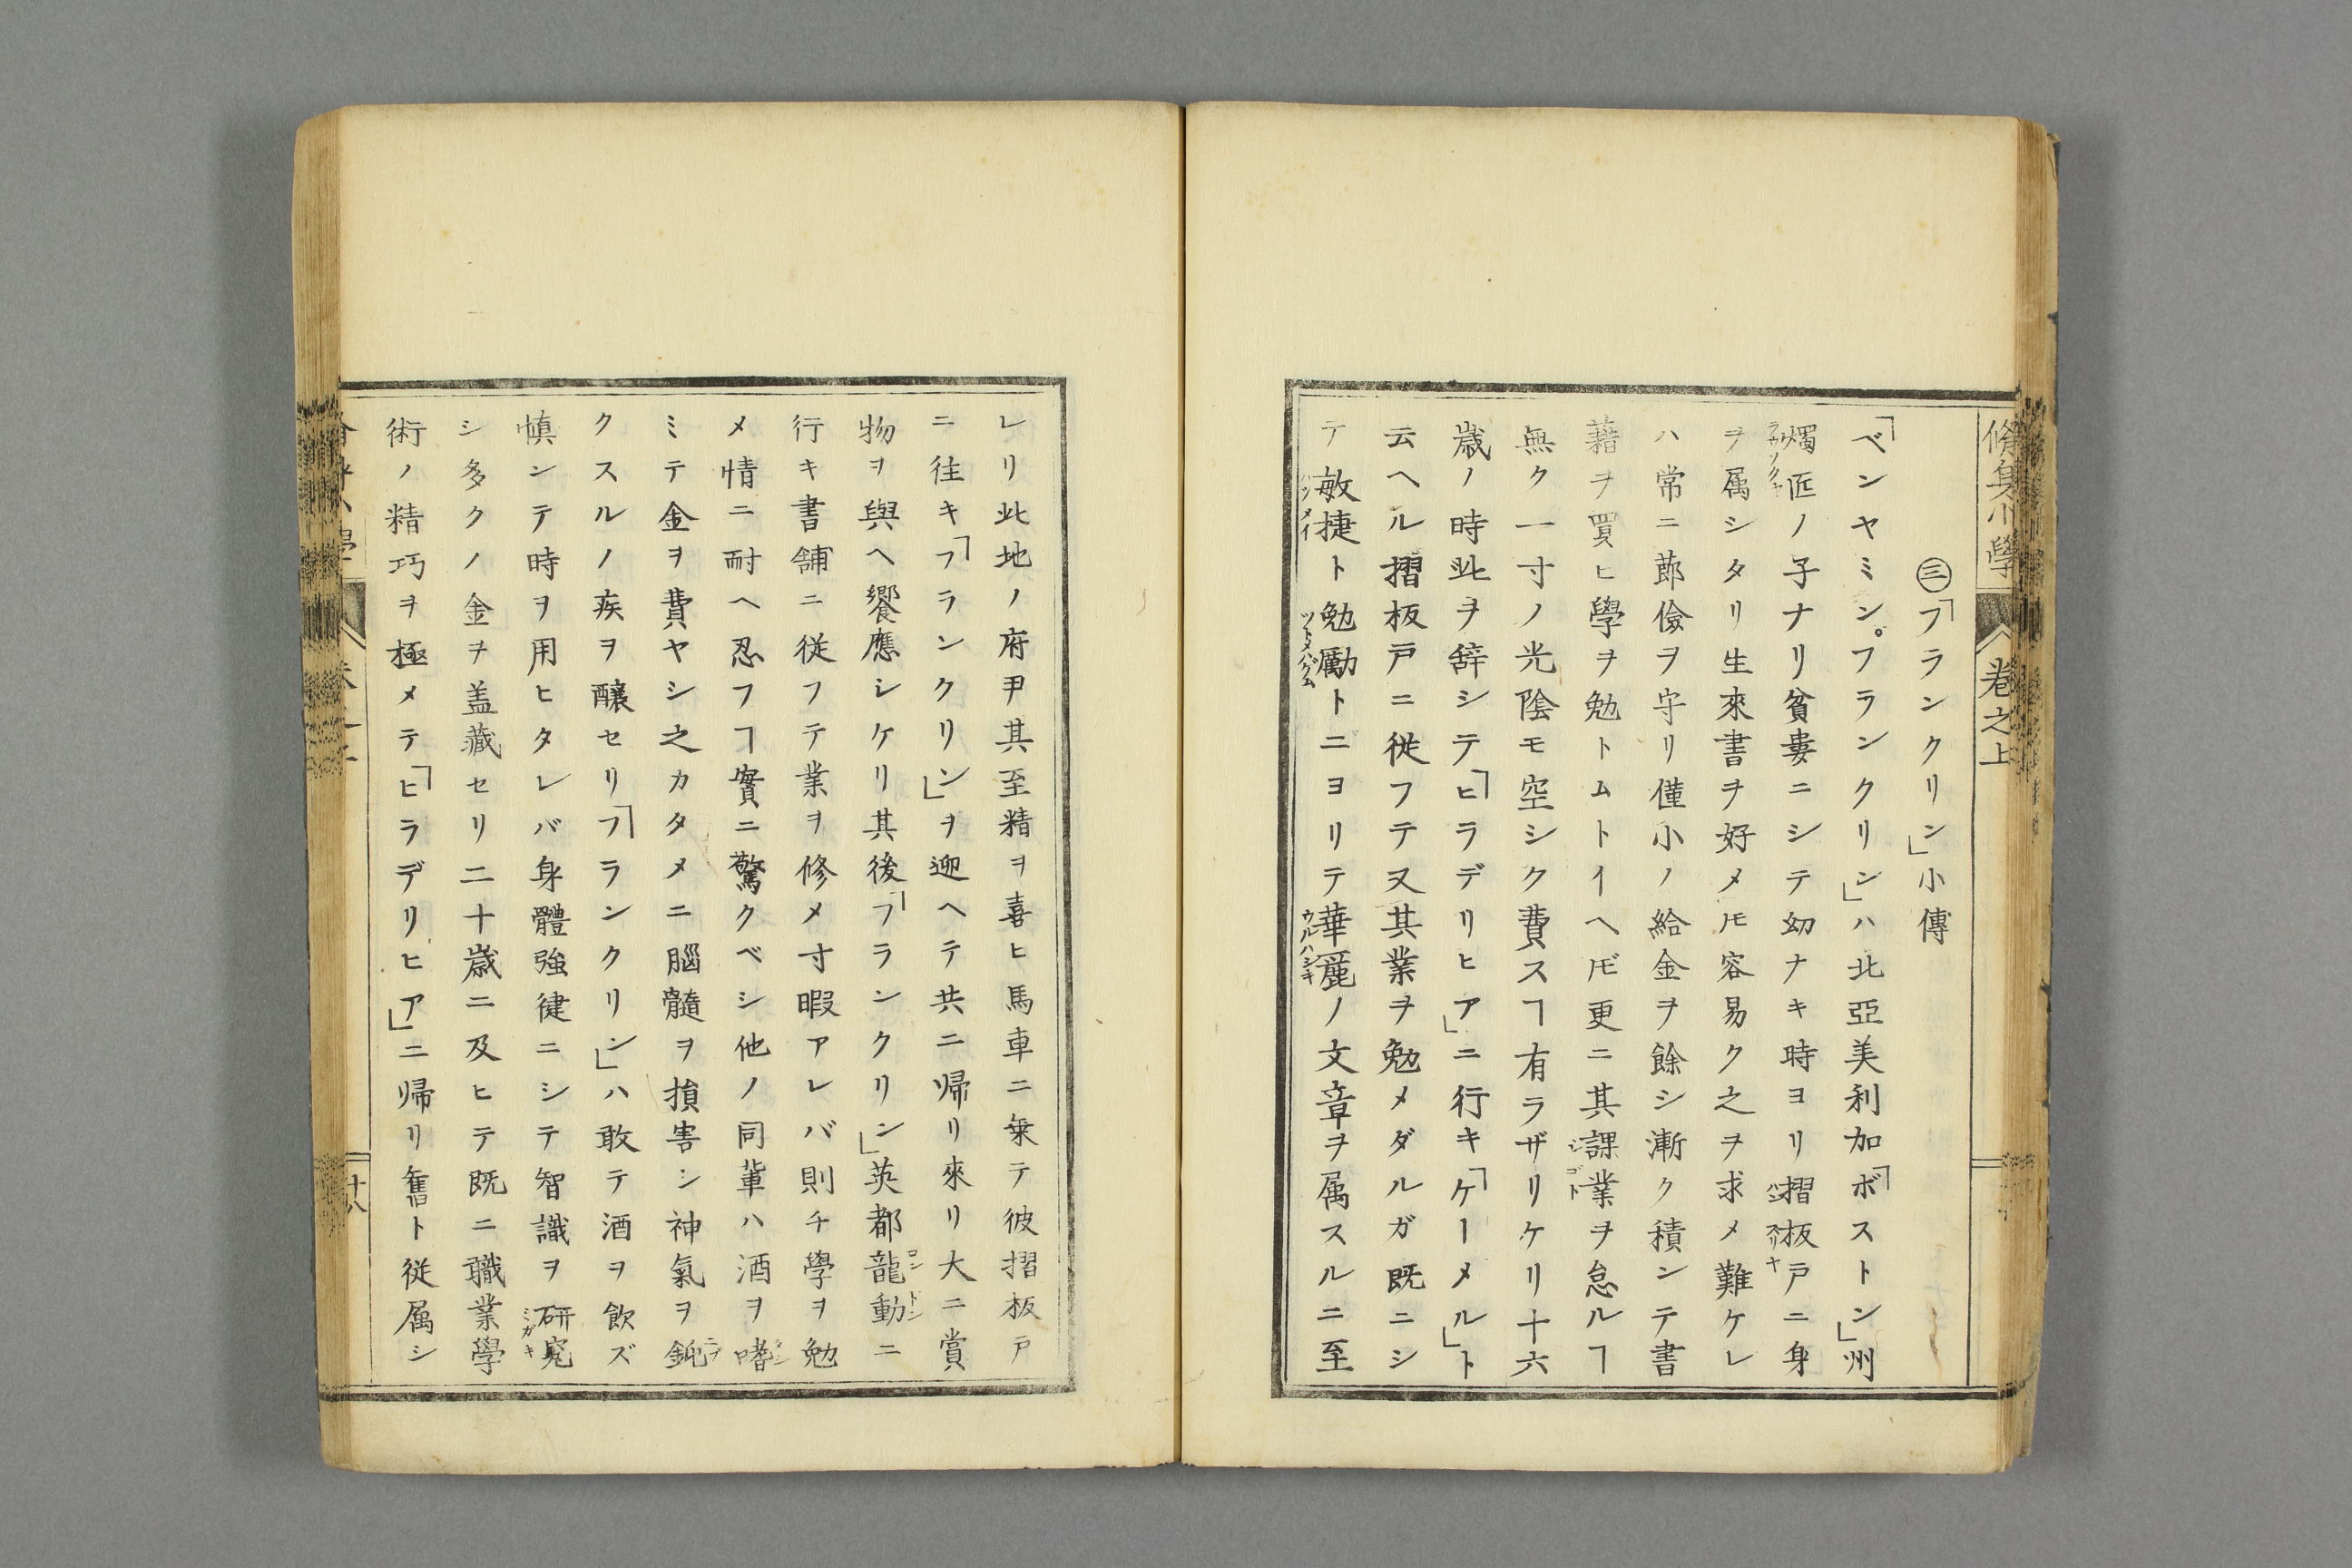 脩身小學 卷之上
㊂「フランクリン」小傳
「ベンヤミン。フランクリン」ハ北亞美利加「ボストン」州
燭匠ノ子ナリ貧婁ニシテ幼ナキ時ヨリ摺板戸ニ身
ヲ属シタリ生來書ヲ好メ𪜈容易ク之ヲ求メ難ケレ
ハ常ニ莭儉ヲ守リ僅小ノ給金ヲ餘シ漸ク積ンテ書
藉ヲ買ヒ學ヲ勉トムトイヘ𪜈更ニ其課業ヲ怠ルヿ
無ク一寸ノ光陰モ空シク費スヿ有ラザリケリ十六
歳ノ時此ヲ辞シテ「ヒラデリヒア」ニ行キ「ケーメル」ト
云ヘル摺板戸ニ従フテ又其業ヲ勉メダルガ既ニシ
テ敏捷ト勉勵トニヨリテ華麗ノ文章ヲ属スルニ至
レリ此地ノ府尹其至精ヲ喜ヒ馬車ニ乗テ彼摺板戸
ニ往キ「フランクリン」ヲ迎ヘテ共ニ帰リ來リ大ニ賞
物ヲ與ヘ饗應シケリ其後「フランクリン」英都龍動ニ
行キ書舖ニ従フテ業ヲ修メ寸暇アレバ則チ學ヲ勉
メ情ニ耐ヘ忍フヿ實ニ驚クベシ他ノ同輩ハ酒ヲ嗜
ミテ金ヲ費ヤシ之カタメニ腦髓ヲ損害シ神氣ヲ鈍
クスルノ疾ヲ釀セリ「フランクリン」ハ敢テ酒ヲ飲ズ
慎ンテ時ヲ用ヒタレバ身體強健ニシテ智識ヲ研究
シ多クノ金ヲ盖藏セリ二十歳ニ及ヒテ既ニ職業學
術ノ精巧ヲ極メテ「ヒラデリヒア」ニ帰リ舊ト従属シ